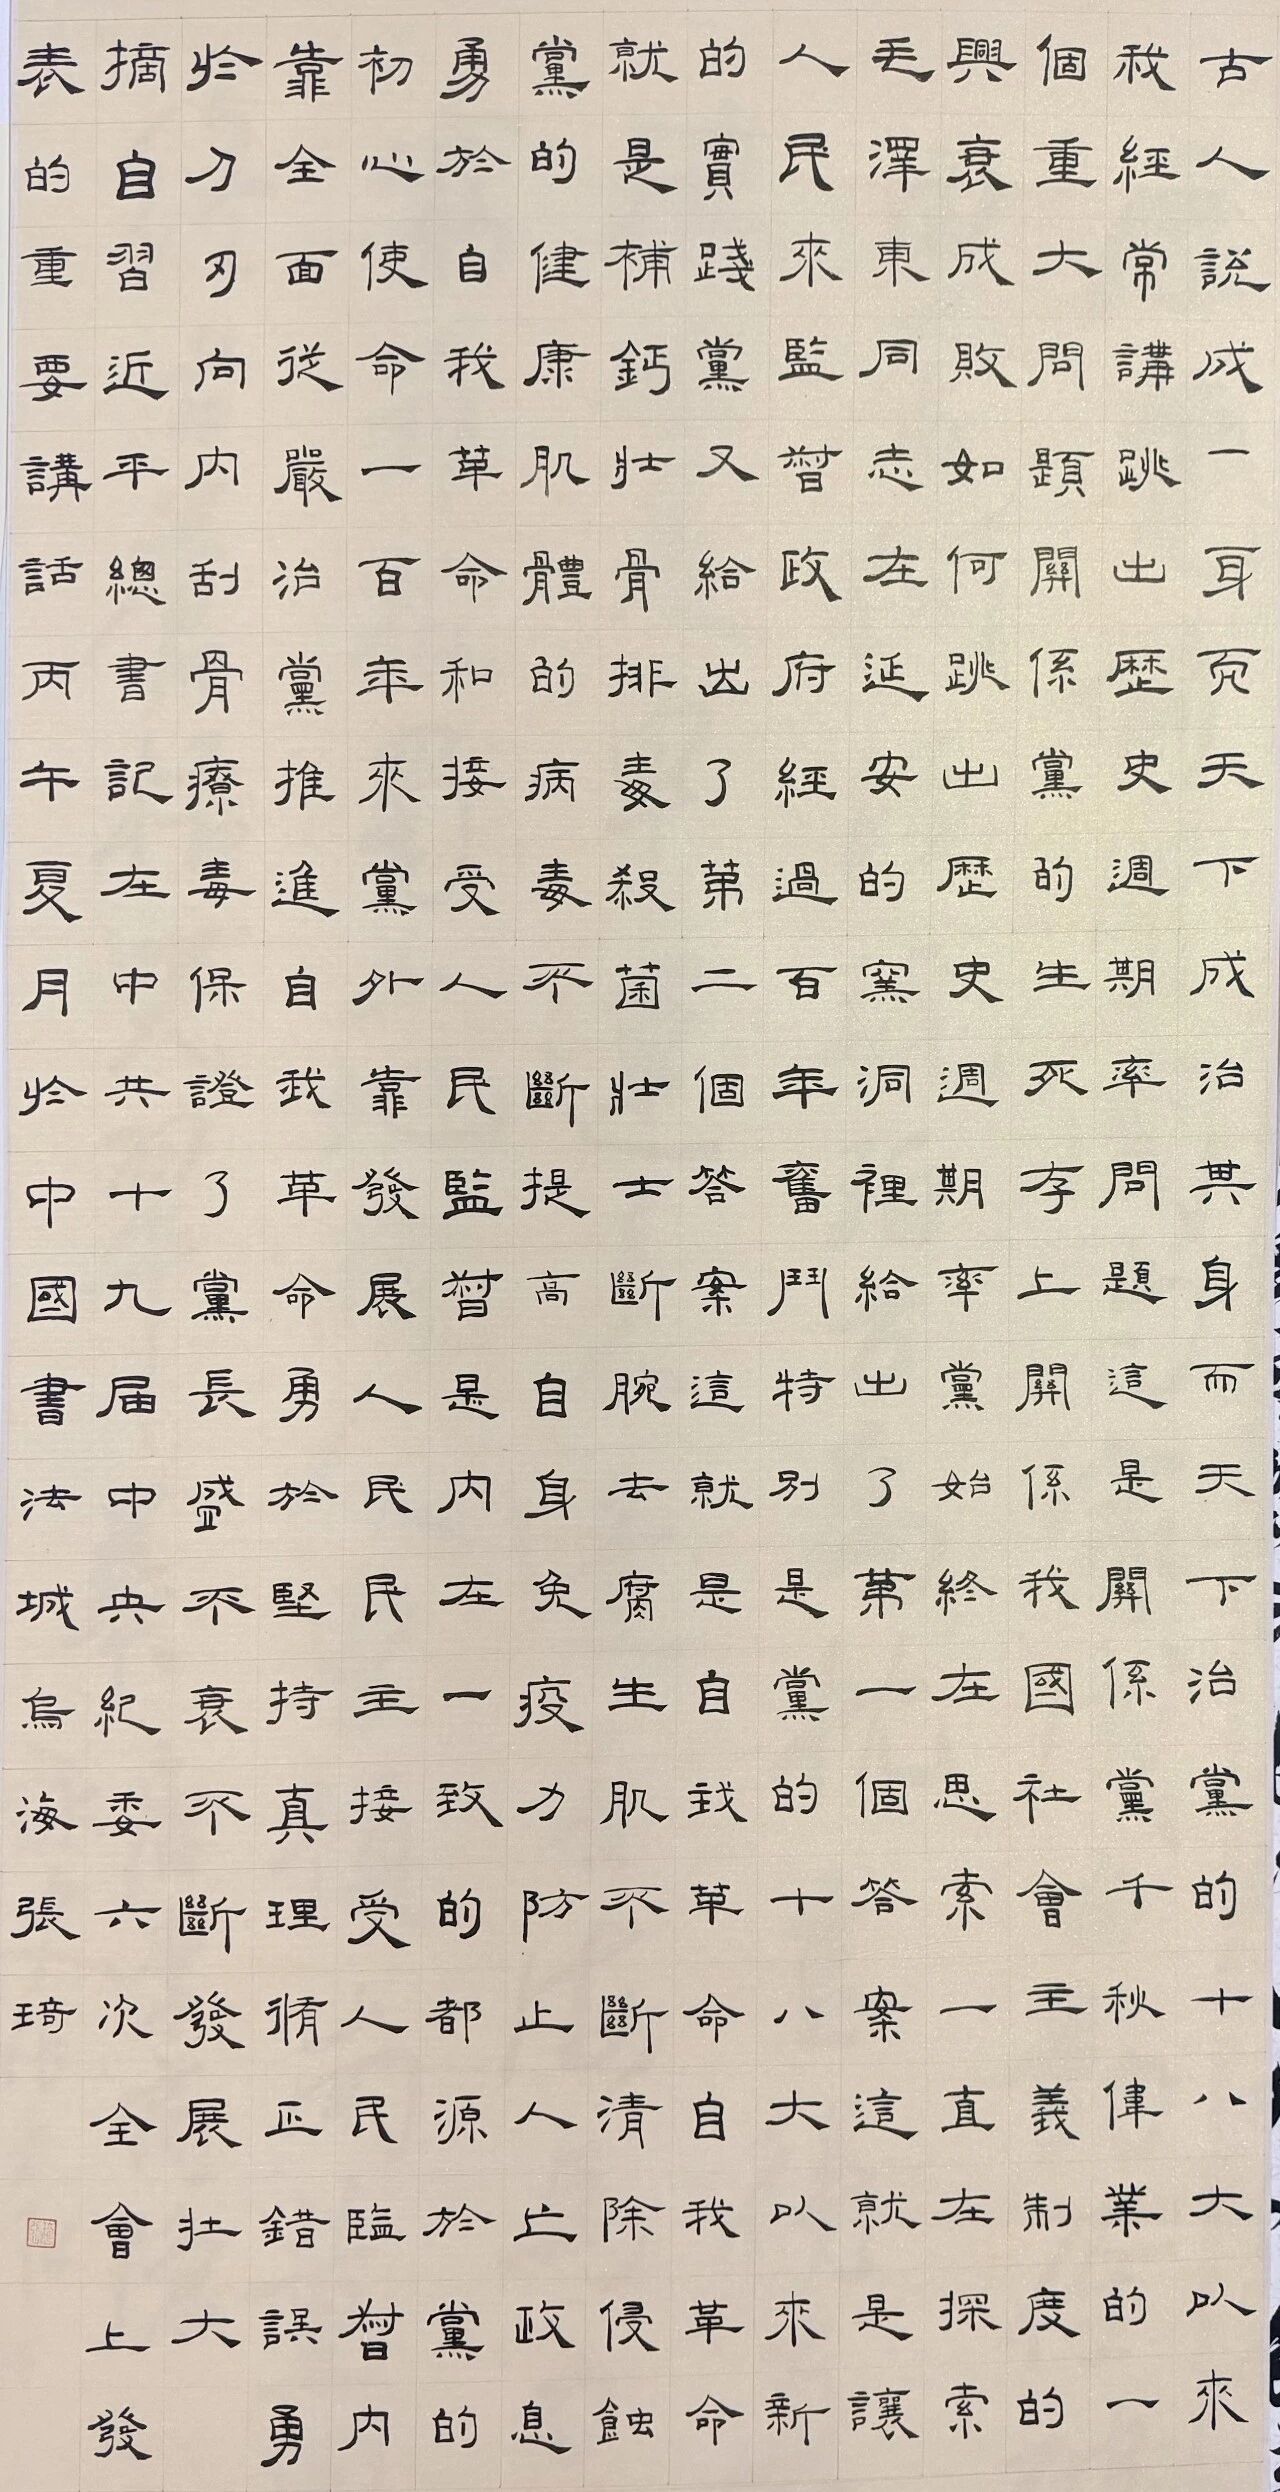 古人説成一天下成治其身而天下治黨的十八大以來
我經常講跳出歷史週期率問題這是關係黨千秋偉業的一
個重大問題關係黨的生死存亡關係我國社會主義制度的
興衰成敗如何跳出歷史週期率黨始終在思索一直在探索
毛澤東同志在延安的窯洞裡給出了第一個答案這就是讓
人民來監督政府經過百年奮鬥特別是黨的十八大以來新
的實踐黨又給出了第二個答案這就是自我革命自我革命
就是補鈣壯骨排毒殺菌壯士斷腕去腐生肌不斷清除侵蝕
黨的健康肌體的病毒不斷提高自身免疫力防止人亡政息
勇於自我革命和接受人民監督是内在一致的都源於黨的
初心使命一百年來黨外靠發展人民民主接受人民臨督内
靠全面從嚴治黨推進自我革命勇於堅持真理脩正錯誤勇
於刀刃向内刮骨療毒保證了黨長盛不衰不斷發展壯大
摘自習近平總書記在中共十九届中央紀委六次全會上發
表的重要講話丙午夏月於中國書法城烏海張琦